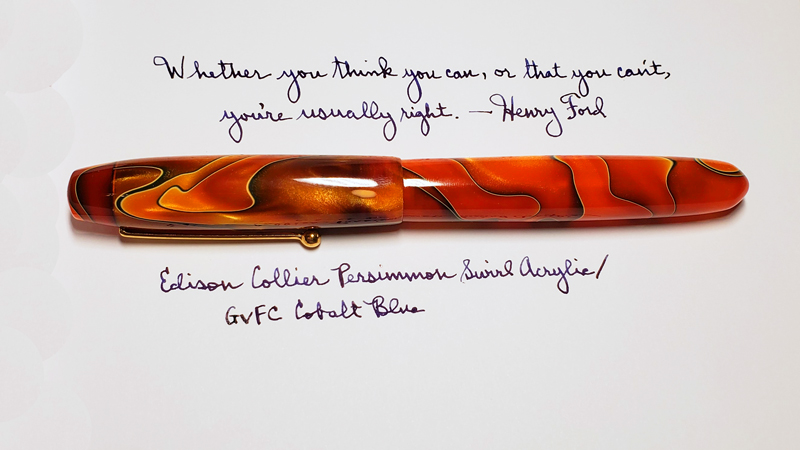 Whether you think you can, or that you can't,
you're usually right. — Henry Ford
Edison Collier Persimmon Swirl Acrylic/
GvFC Cobalt Blue